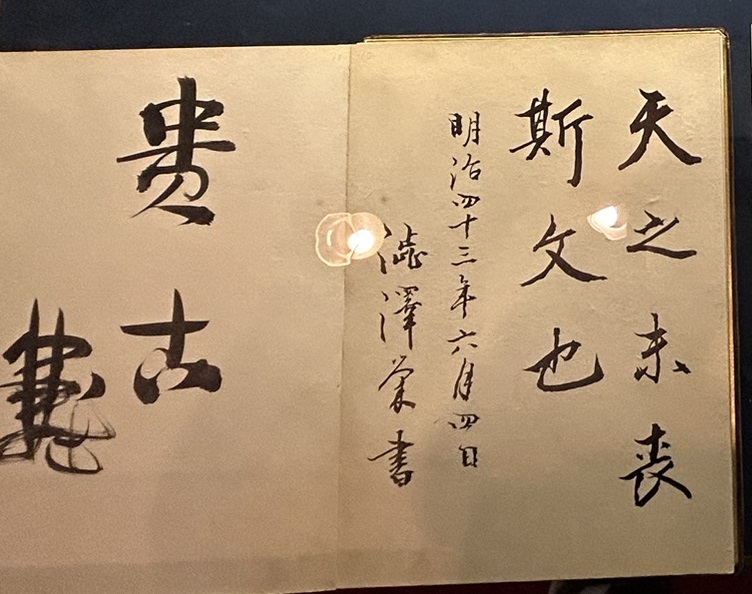 天之未喪
斯文也
明治四十三年六月四日
澁澤榮書
貴古